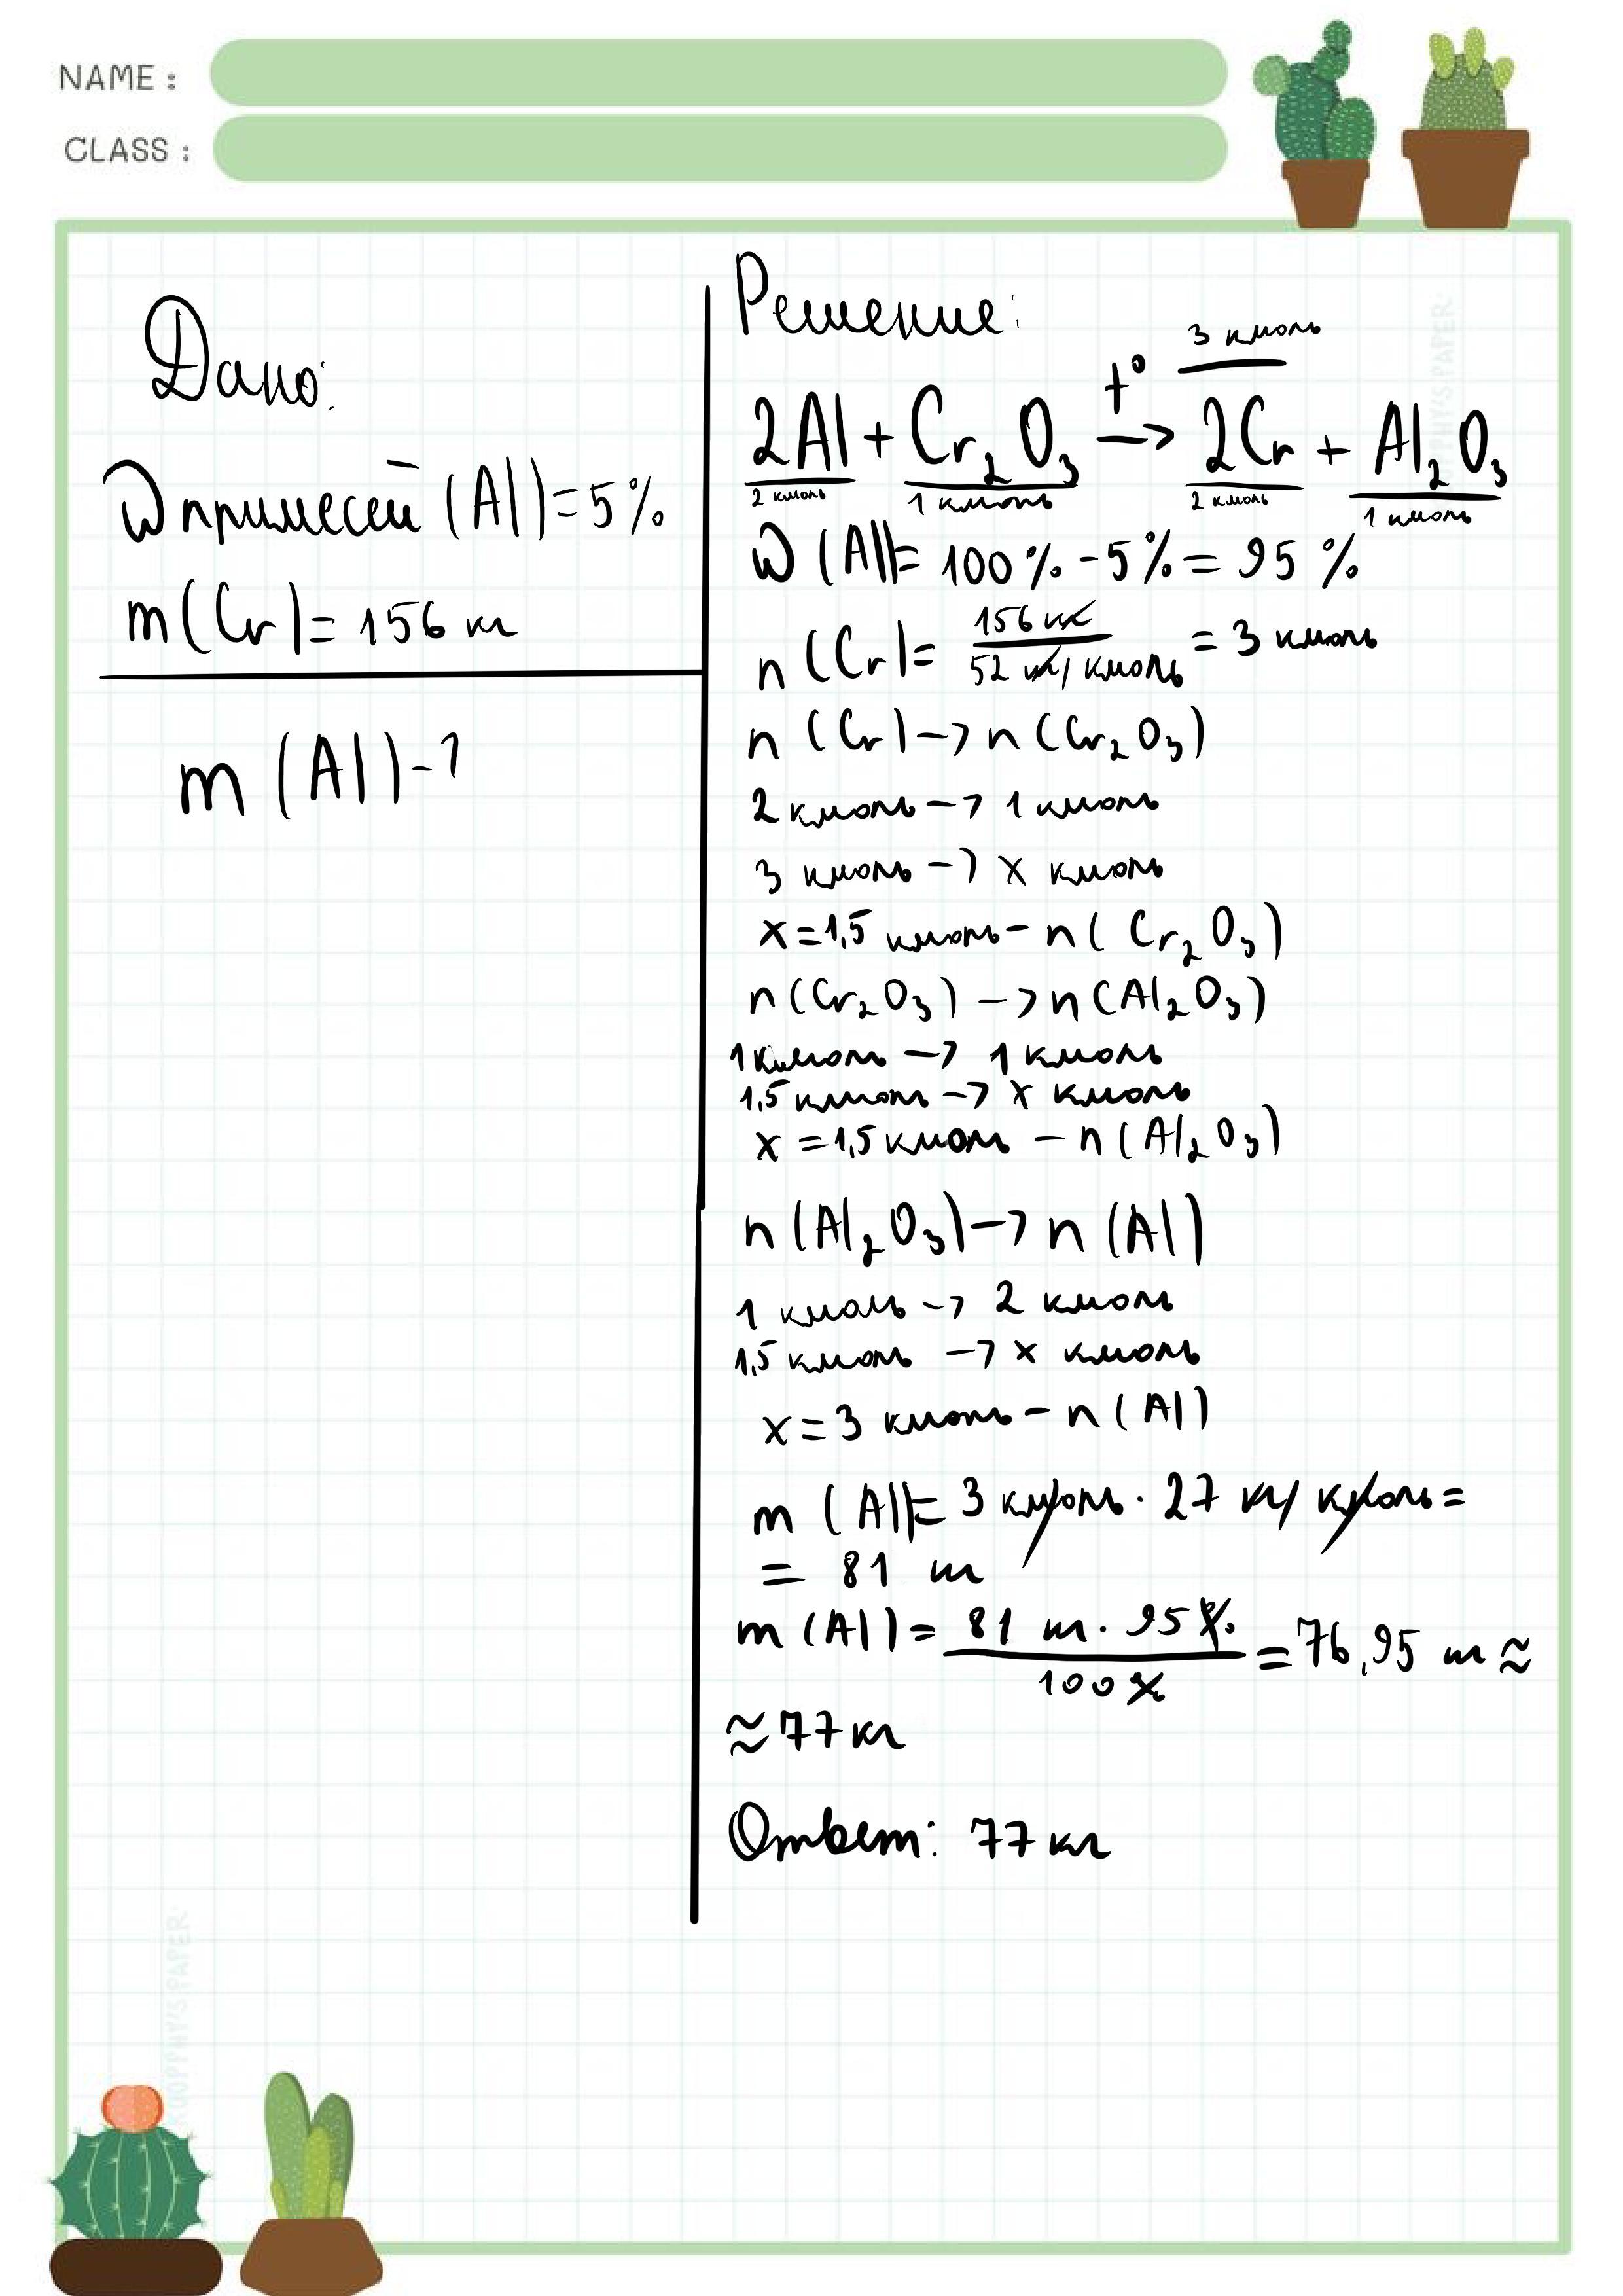 NAME :
CLASS :
Дано:
W примесей (Al) = 5%
m(Cr) = 156 кг
m (Al) - ?
Решение:
3 кмоль
2Al + Cr₂O₃ t° —> 2Cr + Al₂O₃
2 кмоль 1 кмоль 2 кмоль 1 кмоль
W (Al) = 100% - 5% = 95 %
n (Cr) = 156 кг / 52 кг/кмоль = 3 кмоль
n (Cr) —> n (Cr₂O₃)
2 кмоль —> 1 кмоль
3 кмоль —> x кмоль
x = 1,5 кмоль - n( Cr₂O₃)
n(Cr₂O₃) —> n(Al₂O₃)
1 кмоль —> 1 кмоль
1,5 кмоль —> x кмоль
x = 1,5 кмоль - n(Al₂O₃)
n(Al₂O₃) —> n (Al)
1 кмоль -> 2 кмоль
1,5 кмоль —> x кмоль
x = 3 кмоль - n (Al)
m (Al) = 3 кмоль · 27 кг/кмоль =
= 81 кг
m (Al) = 81 кг · 95% / 100% = 76,95 кг ≈
≈ 77 кг
Ответ: 77 кг